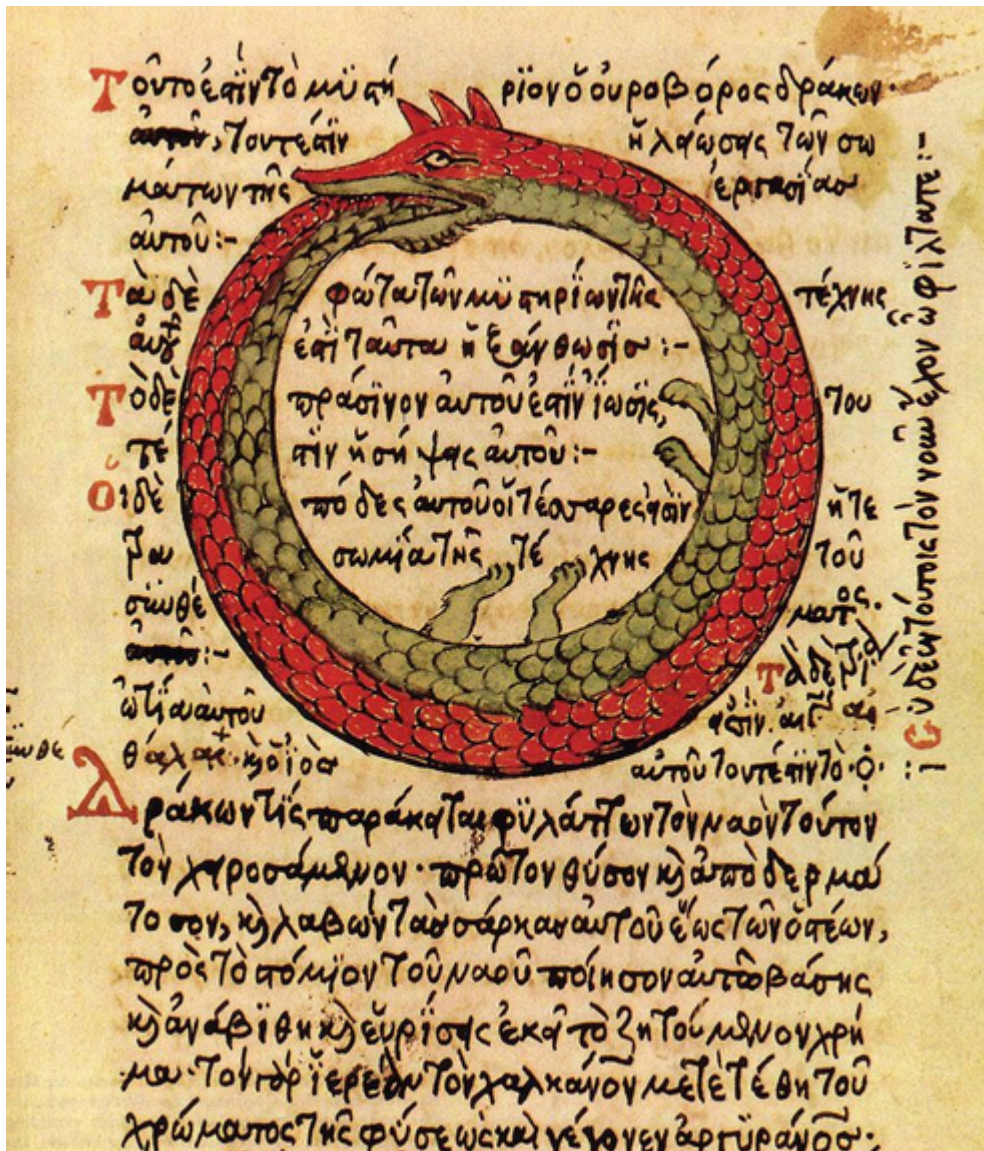 Τοῦτό ἐστὶν τὸ μϋστήριον ὁ οὐροβόρος δράκων·
τουτέστιν ἡ τῶν σω
μάτων τῆς ἐργασίας
αὐτοῦ:-
Τὰ δὲ φῶτα τῶν μϋστηρίων τῆς τέχνης
ἐστὶ ταῦτα ἡ ξάνθωσϊς:-
Τὸ δὲ πράσϊνον αὐτοῦ ἐστὶν ἴωσϊς, του
τέστιν ἡ σήψης αὐτοῦ:-
Οἱ δὲ πόδες αὐτοῦ οἱ τέσσαρες εἰσὶν ἡ τε
τρασωμία τῆς τέχνης τοῦ
σϊνθέματος.
Τὰ δὲ τρία
ὠτία αὐτοῦ εἰσὶν
καὶ ὁ ἰὸς αὐτοῦ τουτέστιν τὸ
Δράκων τίς παράκειται φϋλάττων τὸν ναὸν τοῦτον
τὸν χειροσάμενον· πρῶτον θύσον καὶ ἀποδερμά
τοσον, καὶ λαβὼν τὰς σάρκας αὐτοῦ ἕως τῶν ὀστέων,
πρὸς τὸ στόμϊον τοῦ ναοῦ ποίησον αὐτῶ βάσης
καὶ ἀνάβϊθη καὶ εὑρίσης ἐκεῖ τὸ ζητούμενον χρῆ
μα· τὸν γὰρ ἱερέαν τὸν χαλκάνον μετετέθη τοῦ
χρώματος τῆς φύσεως καὶ γέγονεν ἀργϋράνος·
Σὺ δὲ ἐν τούτοις τὸν νοῦν ἔχον ὦ φϊλτατε:-